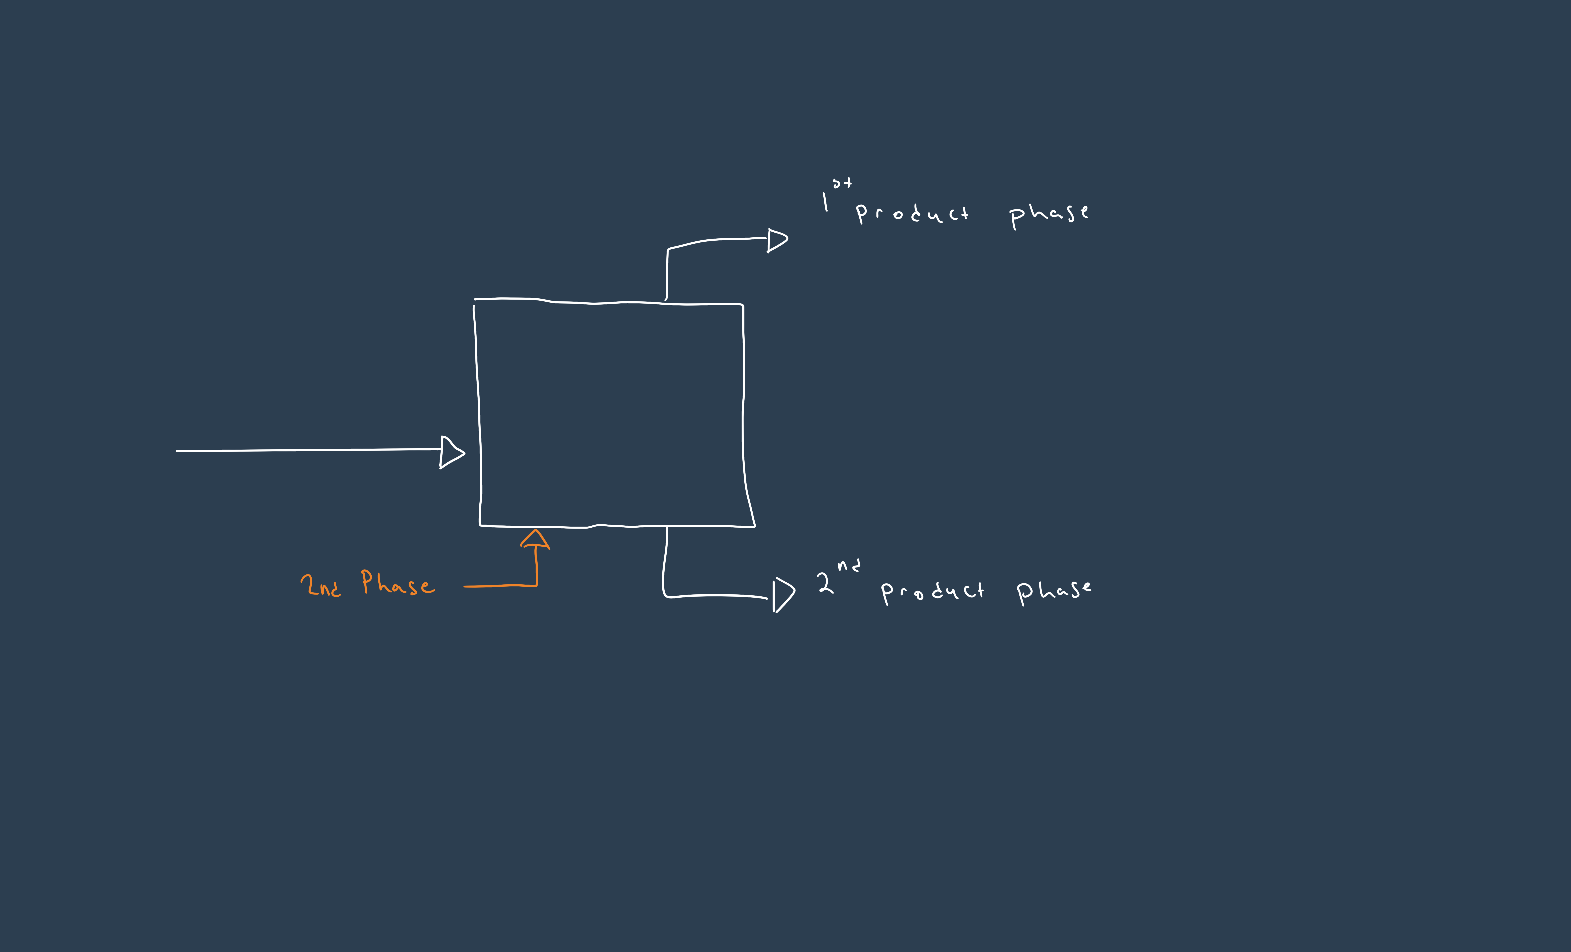 1st product phase
2nd Phase
2nd product phase